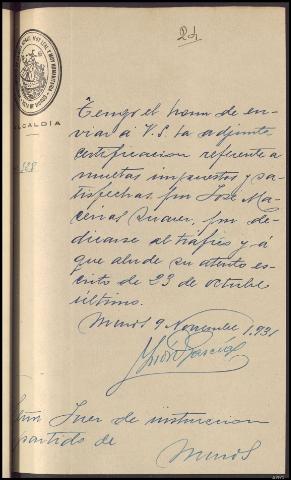 24
ALCALDÍA
128
Tengo el honor de en-
viar á V.S. la adjunta
certificacion referente a
multas impuestas y sa-
tisfechas por Jose Ma-
ceiras Suarez, por de-
dicarse al trafico y á
que alude su atento es-
crito de 23 de octubre
último.
Muros 9 Noviembre 1.931
Juez de instruccion
partido de
Muros